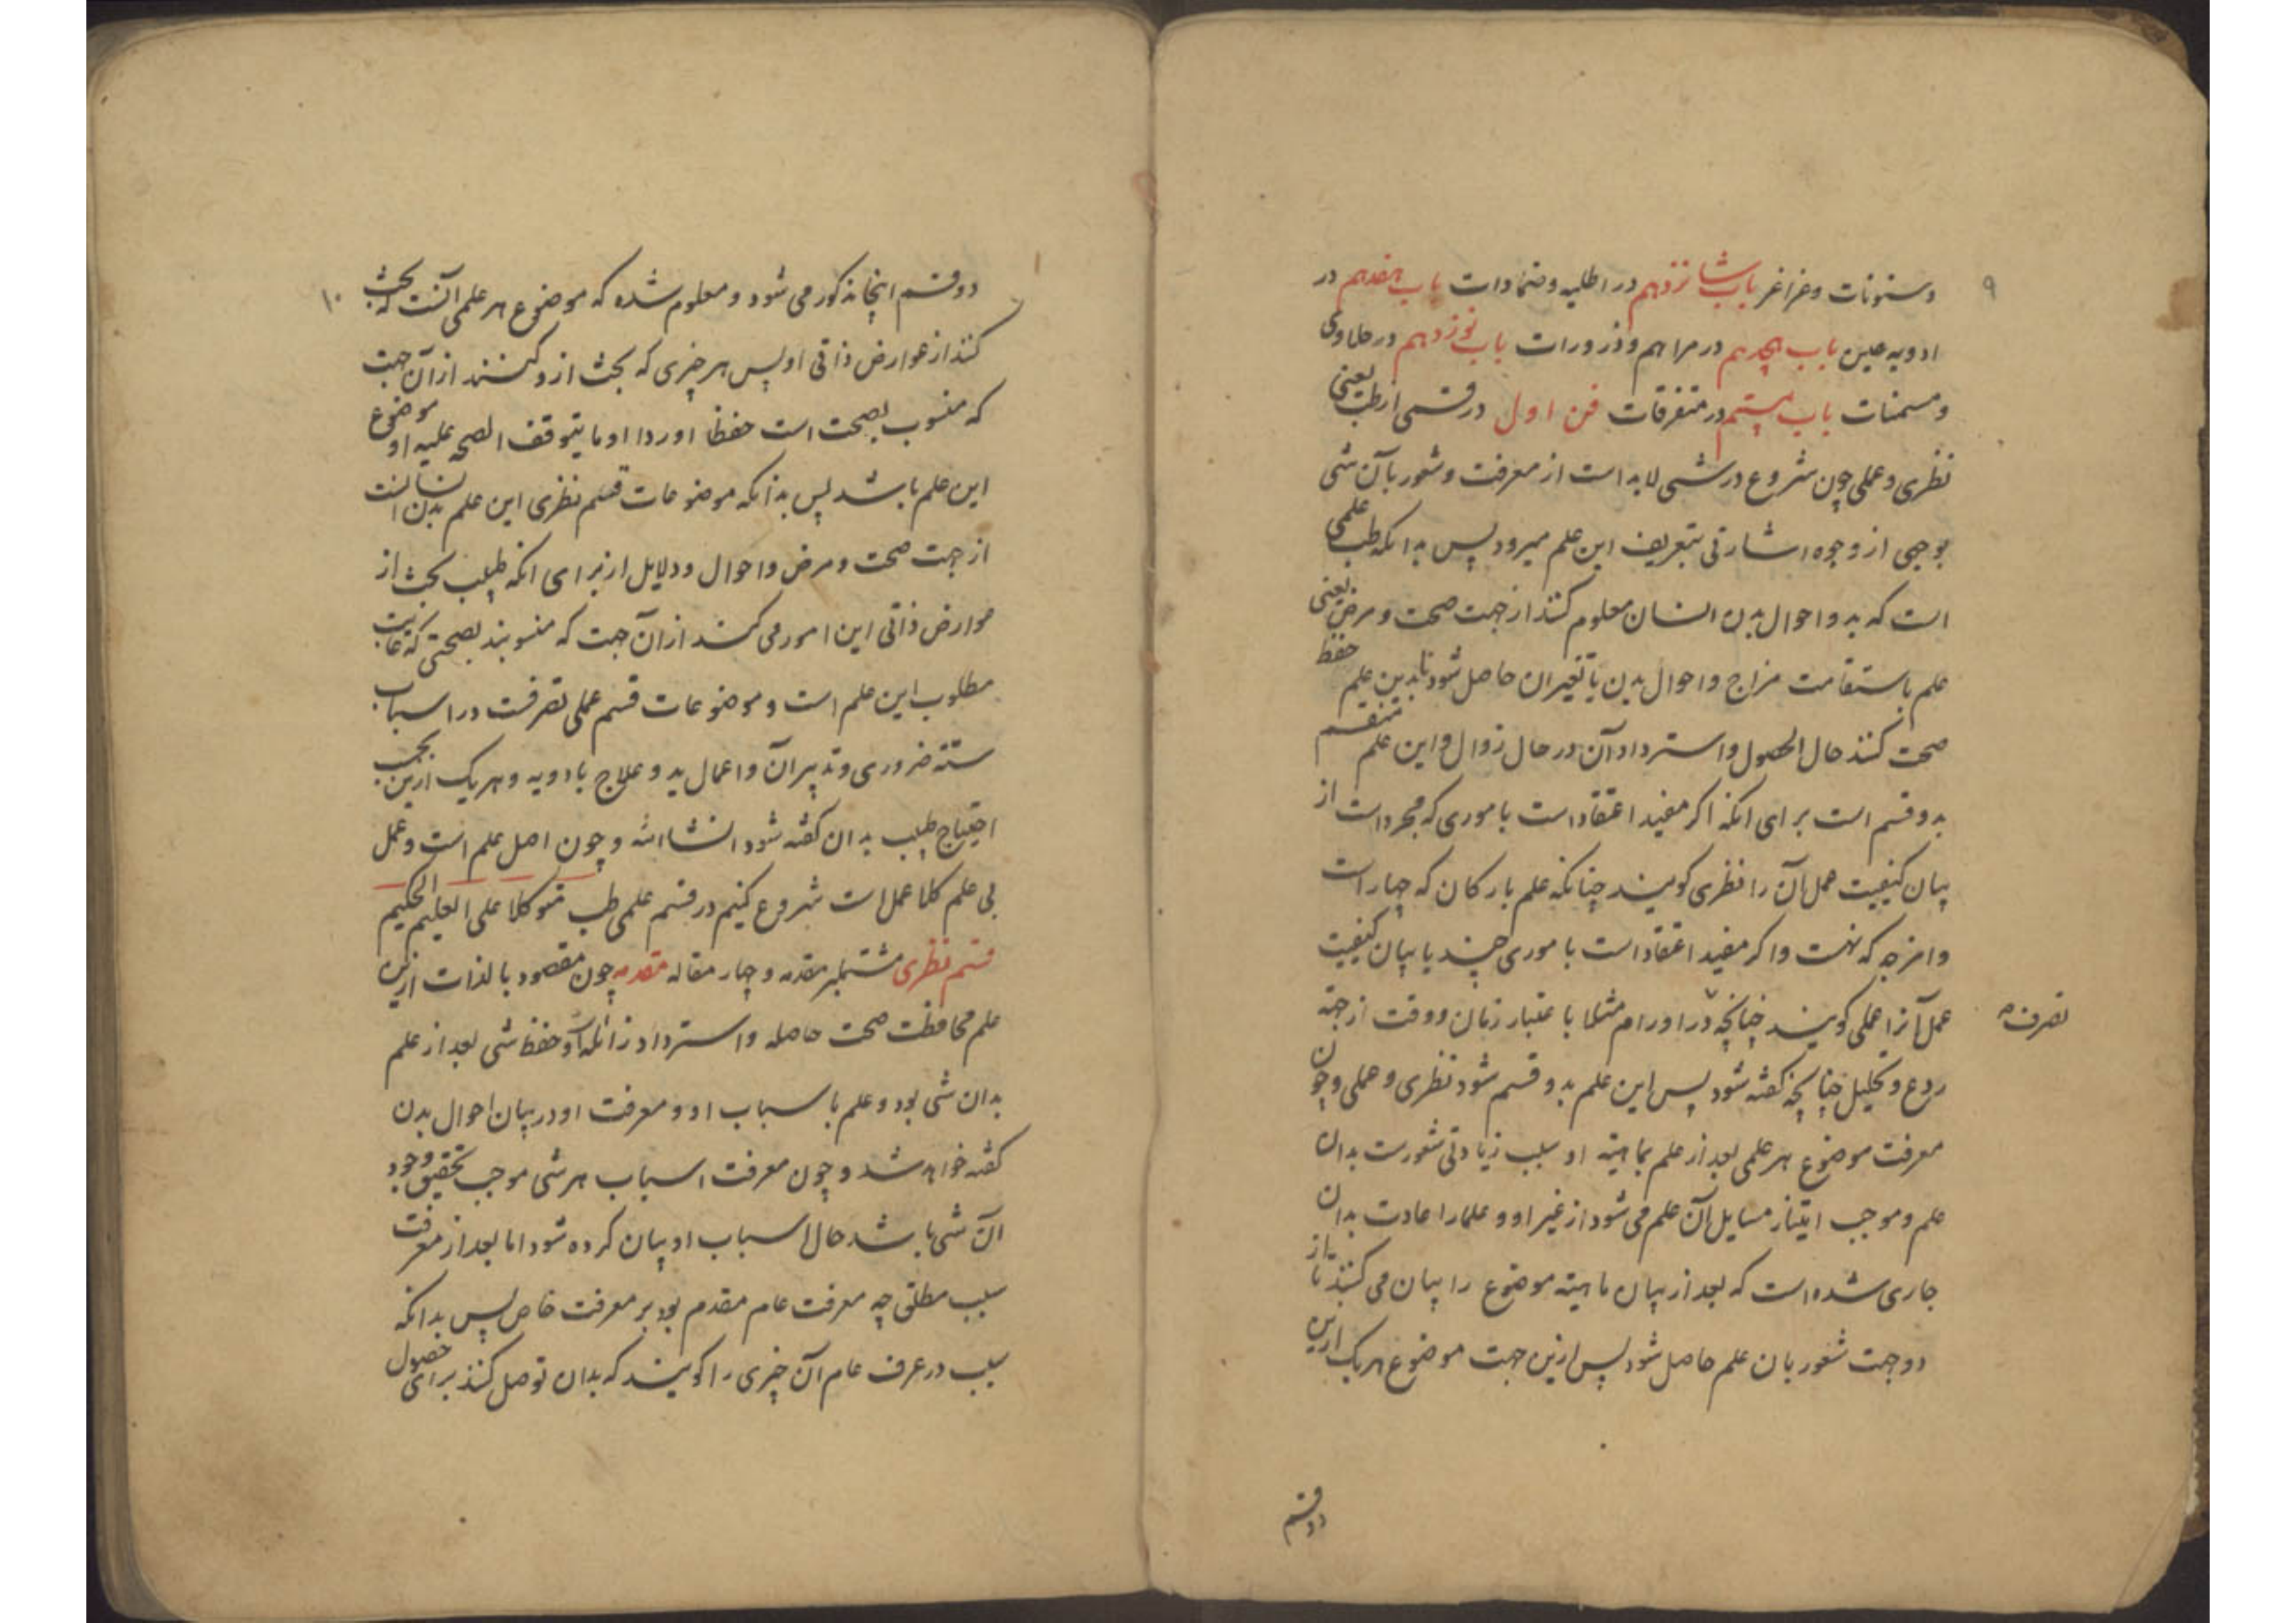 ۹
وسنونات وغراغر باب شانزدهم در اطلیه وضمادات باب هفدهم در
ادویه عین باب هجدهم در مراهم وذرورات باب نوزدهم در حلاوی
ومسمنات باب بیستم در متفرقات فن اول در قسمی از طب یعنی
نظری وعملی چون شروع در شی لابد است از معرفت وشعور بآن شی
بوجهی از وجوه اشارتی بتعریف این علم میرود پس بدانکه طب علمی
است که بدو احوال بدن انسان معلوم کنند از جهت صحت ومرض یعنی
علم باستقامت مزاج واحوال بدن یا تغیر ان حاصل شود تا بدین علم حفظ
صحت کنند حال الحصول واسترداد آن در حال زوال واین علم منقسم
بدو قسم است برای انکه اکر مفید اعتقاد است باموری که مجرد است از
بیان کیفیت عمل آن را نظری کویند چنانکه علم بارکان که چهار است
وامزجه که نهست واکر مفید اعتقاد است باموری چند با بیان کیفیت
عمل آنرا عملی کویند چنانچه در اورام مثلا باعتبار زمان ووقت از جهة
تصرف
ردع وتحلیل چنانچه کفته شود پس این علم بدو قسم شود نظری وعملی وچون
معرفت موضوع هر علمی بعد از علم بماهیة او سبب زیادتی شعورست بدان
علم وموجب امتیاز مسایل آن علم می شود از غیر او وعلما را عادت بدان
جاری شده است که بعد از بیان ماهیة موضوع را بیان می کنند تا از
دو جهت شعور بان علم حاصل شود پس ازین جهت موضوع هر یک ازین
دو قسم
۱۰
دو قسم اینجا مذکور می شود ومعلوم شده که موضوع هر علمی آنست که بحث
کنند از عوارض ذاتی او پس هر چیزی که بحث ازو کنند از آن جهت
که منسوب بصحت است حفظا اوردا او ما یتوقف الصحه علیه او موضوع
این علم باشد پس بدانکه موضوعات قسم نظری این علم بدن انسانست
از جهت صحت ومرض واحوال ودلایل از برای انکه طبیب بحث از
عوارض ذاتی این امور می کند از آن جهت که منسوبند بصحتی که غایت
مطلوب این علم است وموضوعات قسم عملی تصرفست در اسباب
ستة ضروری وتدبیر آن واعمال ید وعلاج بادویه وهر یک ازین بحسب
احتیاج طبیب بدان کفته شود انشاالله وچون اصل علم است وعمل
بی علم کلا عمل است شروع کنیم در قسم علمی طب متوکلا علی العلیم الحکیم
قسم نظری مشتملبر مقدمه وچهار مقاله مقدمه چون مقصود بالذات ازین
علم محافظت صحت حاصله واسترداد زائله است وحفظ شی بعد از علم
بدان شی بود وعلم باسباب او ومعرفت او در بیان احوال بدن
کفته خواهد شد وچون معرفت اسباب هر شی موجب تحقیق وجود
آن شی باشد حال اسباب او بیان کرده شود اما بعد از معرفت
سبب مطلق چه معرفت عام مقدم بود بر معرفت خاص پس بدانکه
سبب در عرف عام آن چیزی را کویند که بدان توصل کنند برای حصول